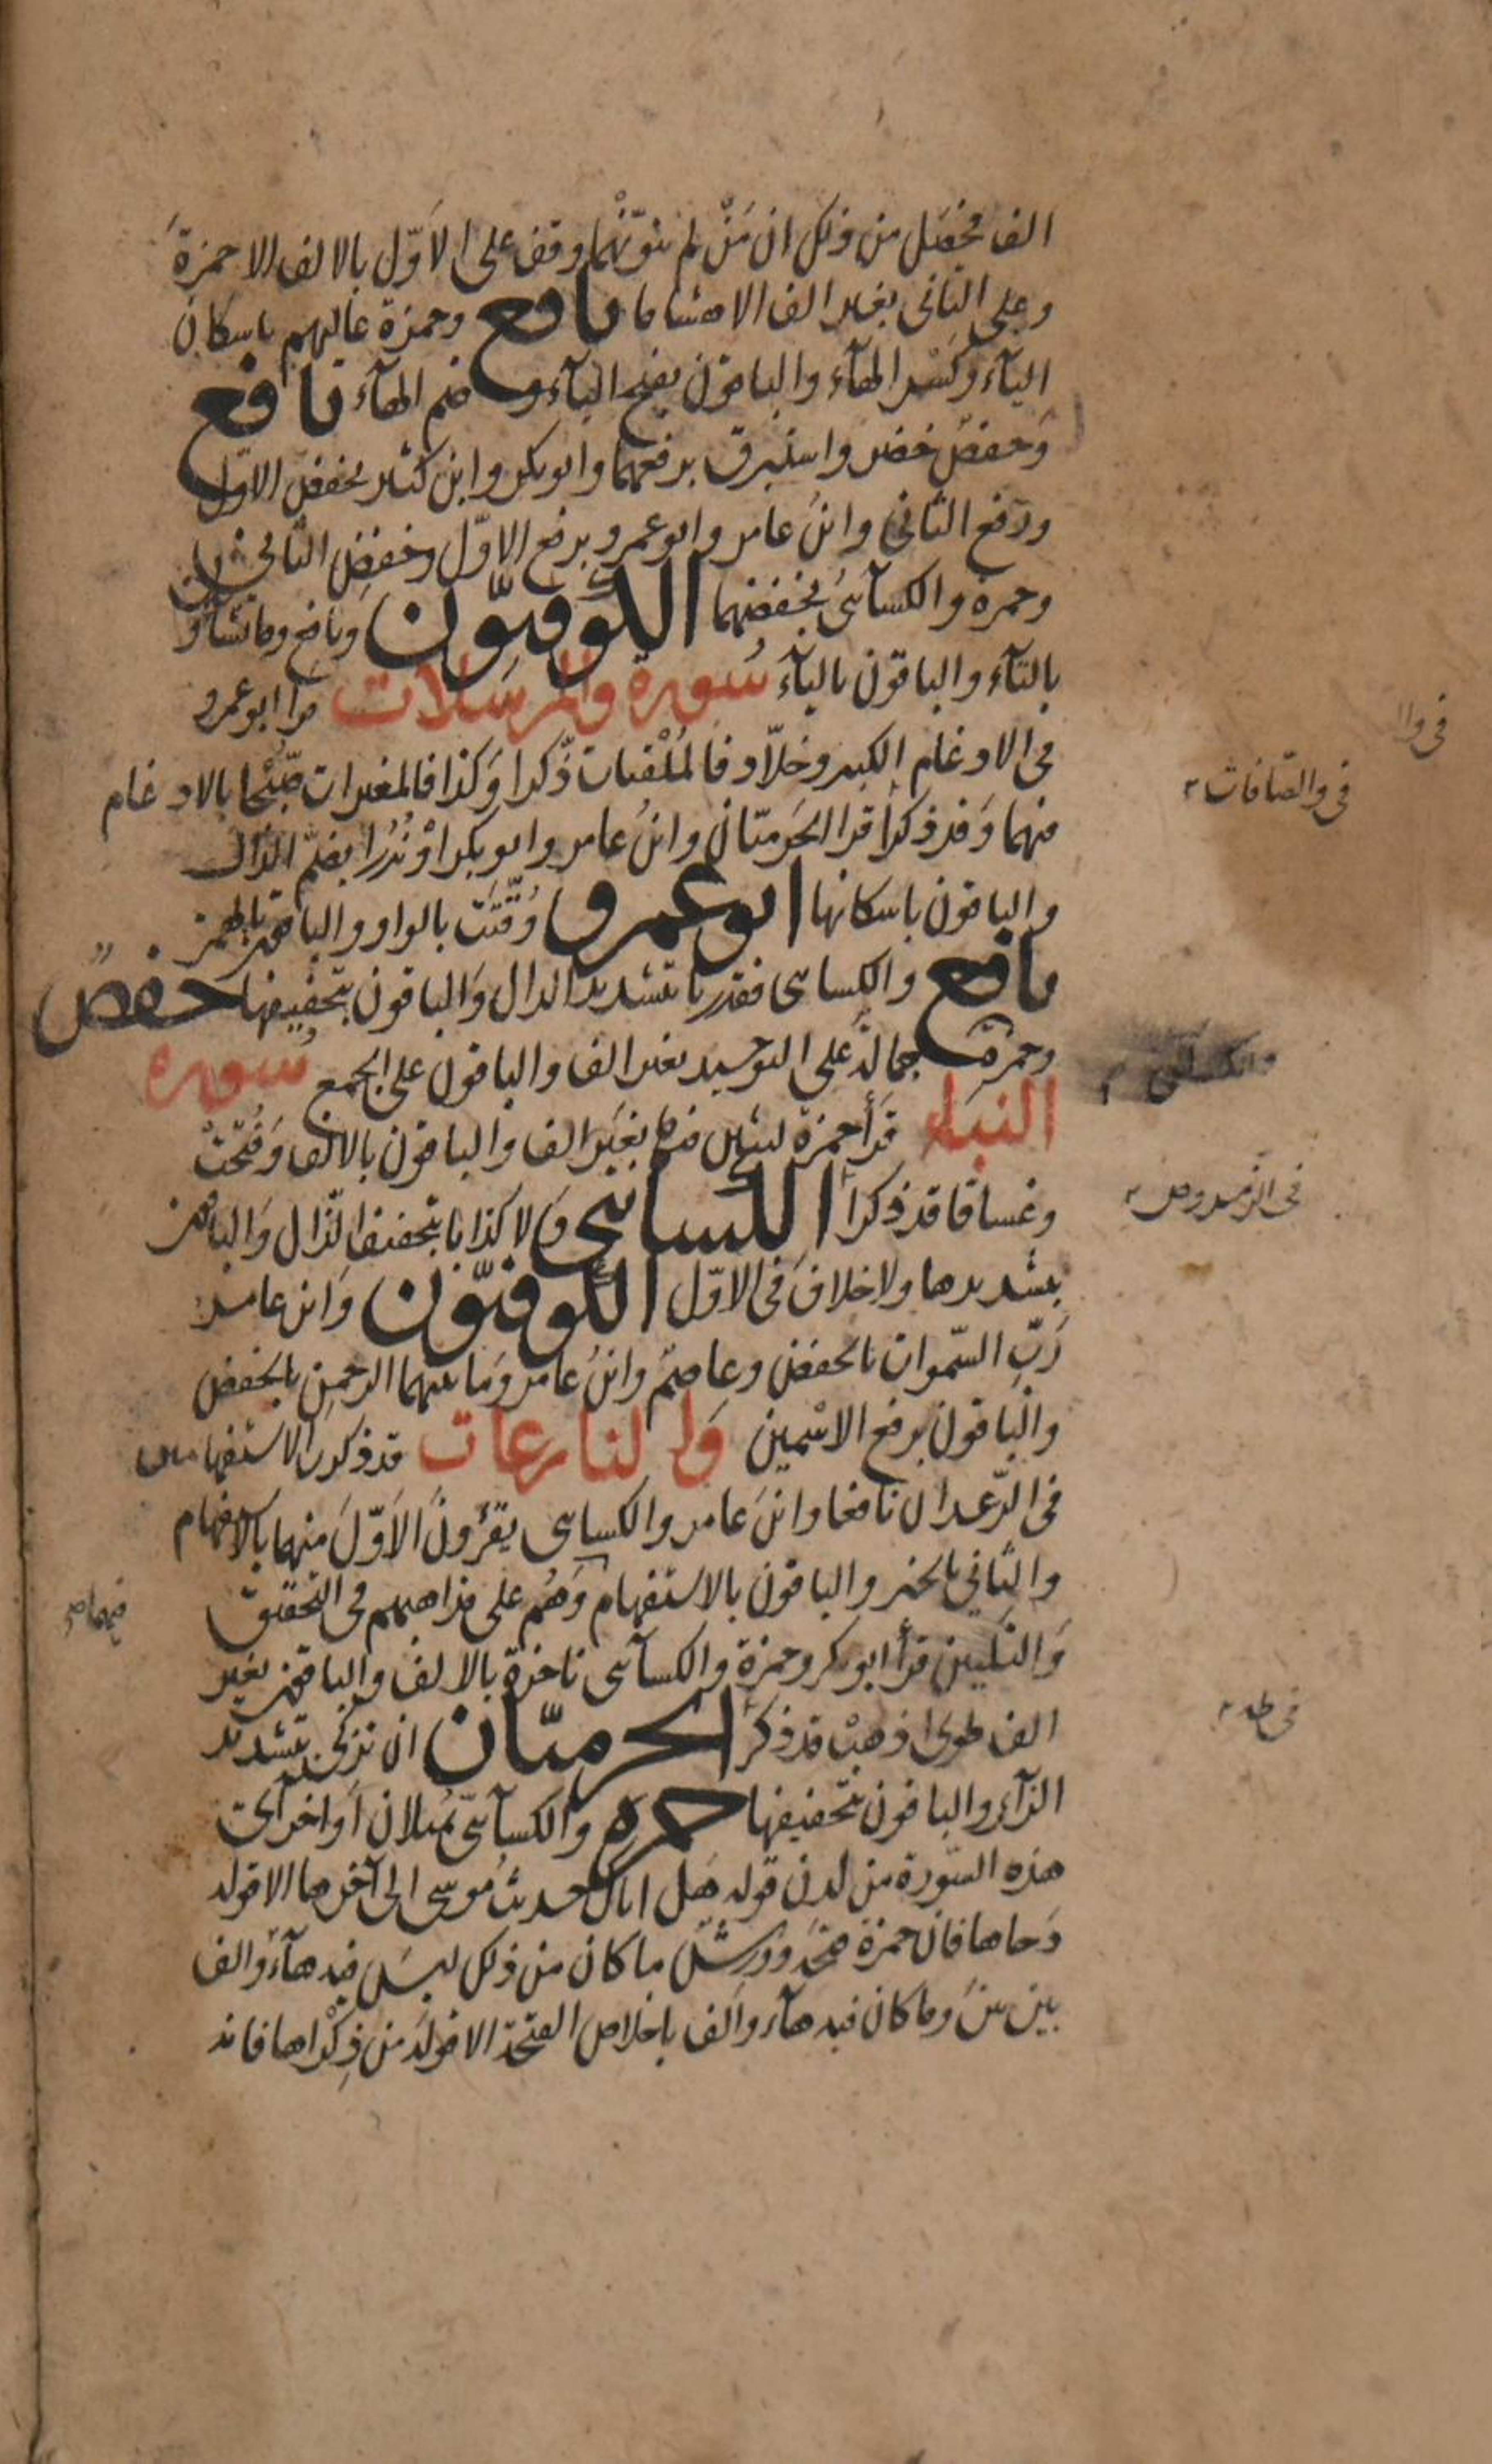 الف فحصل من ذلك ان مَنْ لم ينوّنهما وقف على الاوّل بالالف الا حمزةَ
وعلى الثانى بغير الف الا هشاما نافع وحمزة عاليهم باسكان
اليآء وكسر الهآء والباقون بفتح اليآء وضم الهآء نافع
وحفصٌ خضر واستبرق برفعهما وابو بكر وابن كثير بخفض الاوّل
ورفع الثانى وابنُ عامر وابو عمرو برفع الاوّل وخفض الثانى
وحمزه والكسآئىُ بخفضهما الكوفيّون ونافع وما تشاؤن
بالتآء والباقون باليآء سُورة والمرسَلات قرا ابو عمرو
فى الادغام الكبير وخلاّد فالمُلْقيات ذّكرا وَكذا فالمغيرات صّبْحا بالادغام
فيهما وَقد ذكرا قرا الحَرميّان وابنُ عامر وابو بكر اوْ نُذُرا بضمّ الذال
والباقون باسكانها ابو عمرو وُقّتَت بالواو والباقون بالهمز
نافع والكسائى فقدرنا بتشديد الدال وَالباقون بتخفيفها حفصٌ
وحمزة جمالة على التوحيد بغير الف والباقون على الجمع سُوره
النبإ قرأ حمزة لبثين فيها بغيَر الف والباقون بالالف وَفُتحَتْ
وغساقا قد ذكرا الكسائى ولا كذابا بتخفيف الذال وَالباقون
بتشديدها ولا خلافَ فى الاوّل الكوفيّون وَابن عامر
رَبّ السّموات بالخفض وعاصمٌ وابنُ عامر وَما بينهما الرحمن بالخفض
والباقون برفع الاسْمين وَالنازعات قد ذكرنا الاستفهامين
فى الرّعد ان نافعا وابنَ عامر والكسائى يقرؤنَ الاَوّلَ منهما بالاستفهام
والثانى بالخبر والباقون بالاستفهام وَهُم على مذاهبهم فى التحقيق
وَالتليين قرأ ابو بكر وحمزة والكسآئى ناخرة بالالف والباقون بغير
الف طوى اذهبْ قد ذكرَ الحرميّان ان تزكى بتشديد
الزآء والباقون بتخفيفها حمزه والكسآئىّ يُميلان اَواخر آى
هذه السّورة من لدن قوله هَل اتاكَ حديثُ مُوسى الى آخرها الا قوله
دَحاها فان حمزة فتحَه وورش ما كان من ذلك ليسَ فيه هآءٌ والف
بين بينَ وما كان فيه هآء والف باخلاص الفتحة الا قولَه من ذِكْراها فانه
فى والصّافات
فى الزمر وص
فيهما صح
فى طه